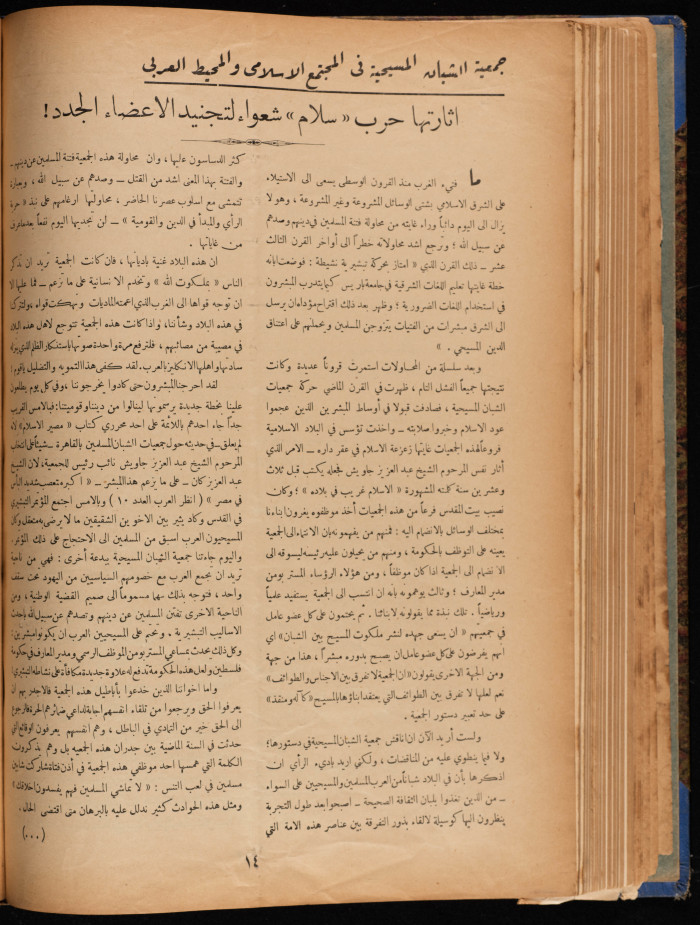 جمعية الشبان المسيحية في المجتمع الاسلامي والمحيط العربي
اثارتها حرب «سلام» شعواء لتجنيد الاعضاء الجدد!
ما فتيء الغرب منذ القرون الوسطى يسعى الى الاستيلاء
على الشرق الاسلامي بشتى الوسائل المشروعة وغير المشروعة، وهو لا
يزال الى اليوم دائباً وراء غايته من محاولة فتنة المسلمين في دينهم وصدهم
عن سبيل الله؛ وترجع اشد محاولاته خطراً الى أواخر القرن الثالث
عشر – ذلك القرن الذي «امتاز بحركة تبشيرية نشيطة: فوضعت ابانه
خطة غايتها تعليم اللغات الشرقية في جامعة باريس كيما يتدرب المبشرون
في استخدام اللغات الضرورية؛ وظهر بعد ذلك اقتراح مؤداه ان يرسل
الى الشرق مبشرات من الفتيات يتزوجن المسلمين ويحملنهم على اعتناق
الدين المسيحي. »
وبعد سلسلة من المحاولات استمرت قروناً عديدة وكانت
نتيجتها جميعاً الفشل التام، ظهرت في القرن الماضي حركة جمعيات
الشبان المسيحية، فصادفت قبولا في أوساط المبشرين الذين عجموا
عود الاسلام وخبروا صلابته – واخذت تؤسس في البلاد الاسلامية
فروعاً لهذه الجمعيات غايتها زعزعة الاسلام في عقر داره – الامر الذي
أثار نفس المرحوم الشيخ عبد العزيز جاويش فجعله يكتب قبل ثلاث
وعشرين سنة كلمته المشهورة «الاسلام غريب في بلاده»؛ وكان
نصيب بيت المقدس فرعاً من هذه الجمعيات أخذ موظفوه يغرون ابناءنا
بمختلف الوسائل بالانضمام اليه: فمنهم من يفهمونه بان الانتماء الى الجمعية
يعينه على التوظف بالحكومة، ومنهم من يحيلون عليه رئيسه ليسوقه الى
الانضمام الى الجمعية اذا كان موظفاً، ومن هؤلاء الرؤساء المستر بومن
مدير المعارف؛ وثالث يوهمونه بانه ان انتسب الى الجمعية يستفيد علمياً
ورياضياً. تلك نبذة مما يقولونه لابنائنا. ثم يحتمون على كل عضو عامل
في جمعيتهم «ان يسعى جهده لنشر ملكوت المسيح بين الشبان» اي
انهم يفرضون على كل عضو عامل ان يصبح بدوره مبشراً، هذا من جهة
ومن الجهة الاخرى يقولون «ان الجمعية لا تفرق بين الاجناس والطوائف»
نعم لعلها لا تفرق بين الطوائف التي يعتقد ابناؤها بالمسيح «كآله ومنقذ»
على حد تعبير دستور الجمعية.
ولست أريد الآن ان اناقش جمعية الشبان المسيحية في دستورها؛
ولا فيما ينطوي عليه من المناقضات، ولكني اريد بادىء الرأي ان
اذكرها بأن في البلاد شباناً من العرب المسلمين والمسيحيين على السواء
– من الذين تغذوا بلبان الثقافة الصحيحة – اصبحوا بعد طول التجربة
ينظرون اليها كوسيلة لالقاء بذور التفرقة بين عناصر هذه الامة التي
كثر الدساسون عليها، وان محاولة هذه الجمعية فتنة المسلمين عن دينهم –
والفتنة بهذا المعنى اشد من القتل – وصدهم عن سبيل الله، وبعبارة
تتمشى مع اسلوب عصرنا الحاضر، محاولتها ارغامهم على نبذ «حرية
الرأي والمبدأ في الدين والقومية» – لن تجديها اليوم نفعاً بعد ما عرف
من غاياتها.
ان هذه البلاد غنية بأديانها، فان كانت الجمعية تريد ان تذكر
الناس «بملكوت الله» وتخدم الانسانية على ما تزعم – فما عليها الا
ان توجه قواها الى الغرب الذي اعمته الماديات وتهكت قواه
في هذه البلاد وشأننا، واذا كانت هذه الجمعية تتوجع لاهل هذه البلاد
في مصيبة من مصائبهم، فلترفع مرة واحدة صوتها باستنكار الظلم الذي
سادتها واهلها الانكليز بالعرب. لقد كفى هذا التمويه والتضليل ياقوم!
لقد احرجنا المبشرون حتى كادوا يخرجوننا، وفي كل يوم يطلعون
علينا بخطة جديدة يرسمونها لينالوا من ديننا وقوميتنا: فبالامس القريب
جداً جاء احدهم باللائمة على احد محرري كتاب «مصير الاسلام» لانه
لم يعلق – في حديثه حول جمعيات الشبان المسلمين بالقاهرة – شيئاً على انتخاب
المرحوم الشيخ عبد العزيز جاويش نائب رئيس للجمعية، لان الشيخ
عبد العزيز كان – على ما يزعم هذا المبشر – «اكبر متعصب شديد البأس
في مصر» (انظر العرب العدد ١٠) وبالامس اجتمع المؤتمر التبشيري
في القدس وكاد يثير بين الاخوين الشقيقين ما لا يرضى به متعقل وكان
المسيحيون العرب اسبق من المسلمين الى الاحتجاج على ذلك المؤتمر.
واليوم جاءتنا جمعية الشبان المسيحية ببدعة أخرى: فهي من ناحية
تريد ان تجمع العرب مع خصومهم السياسيين من اليهود تحت سقف
واحد، فتوجه بذلك سهماً مسموماً الى صميم القضية الوطنية، ومن
الناحية الاخرى تفتن المسلمين عن دينهم وتصدهم عن سبيل الله باحدث
الاساليب التبشيرية. وتحتم على المسيحيين العرب ان يكونوا مبشرين:
وكل ذلك يحدث بمساعي المستر بومن الموظف الرسمي ومدير المعارف في حكومة
فلسطين ولعل هذه الحكومة تدفع له علاوة جديدة مكافأة على نشاطه التبشيري!
واما اخواننا الذين خدعوا بأباطيل هذه الجمعية فالاجدر بهم ان
يعرفوا الحق ويرجعوا من تلقاء انفسهم اجابة لداعي ضمائرهم الحرة فالرجوع
الى الحق خير من التمادي في الباطل، وهم انفسهم يعرفون الوقائع التي
حدثت في السنة الماضية بين جدران هذه الجمعية بل وهم يذكرون
الكلمة التي همسها احد موظفي هذه الجمعية في أذن فتاة شاركت شابين
مسلمين في لعب التنس: «لا تماشي المسلمين فهم يفسدون اخلاقك»
ومثل هذه الحوادث كثير ندلل عليه بالبرهان متى اقتضى الحال.
(...)
١٤